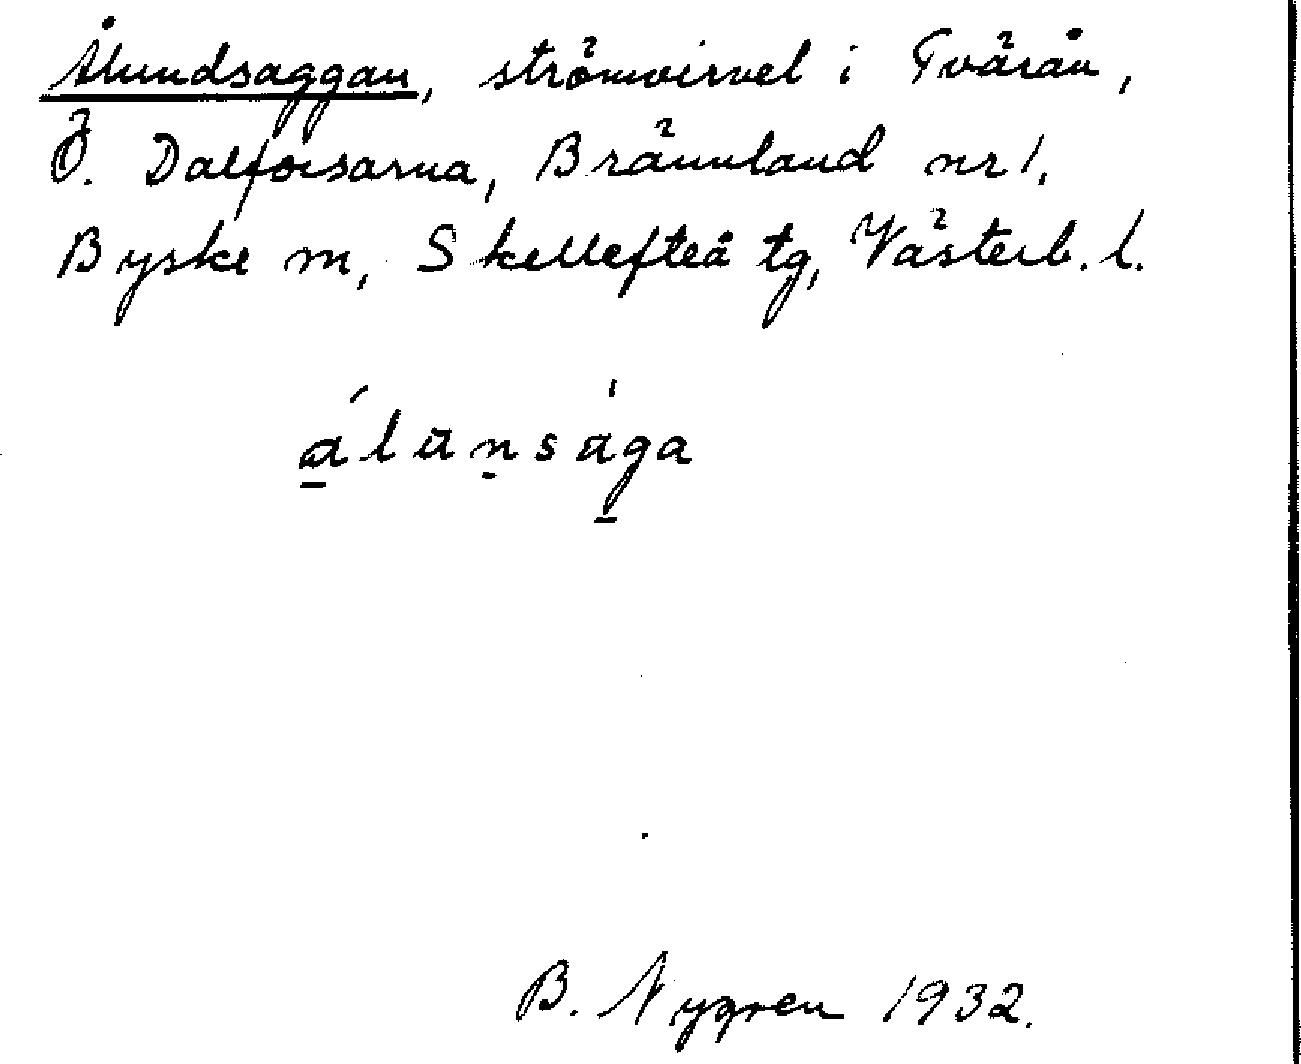 Ålundsaggan, strömvirvel i Tvärån,
Ö. Dalforsarna, Brännland nr 1.
Byske sn, Skellefteå tg, Västerb. l.
a̱´lunsa̍ga
B. Nygren 1932.